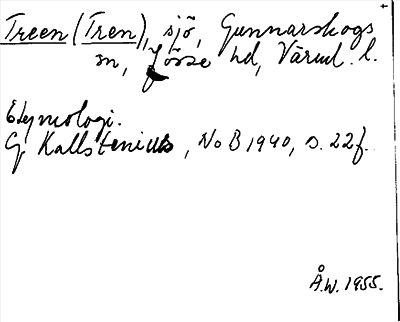 Treen (Tren), sjö, Gunnarskogs
sn, Jösse hd, Värml. l.
Etymologi.
G. Kallstenius, NoB 1940, s. 22f.
Å.W. 1955.